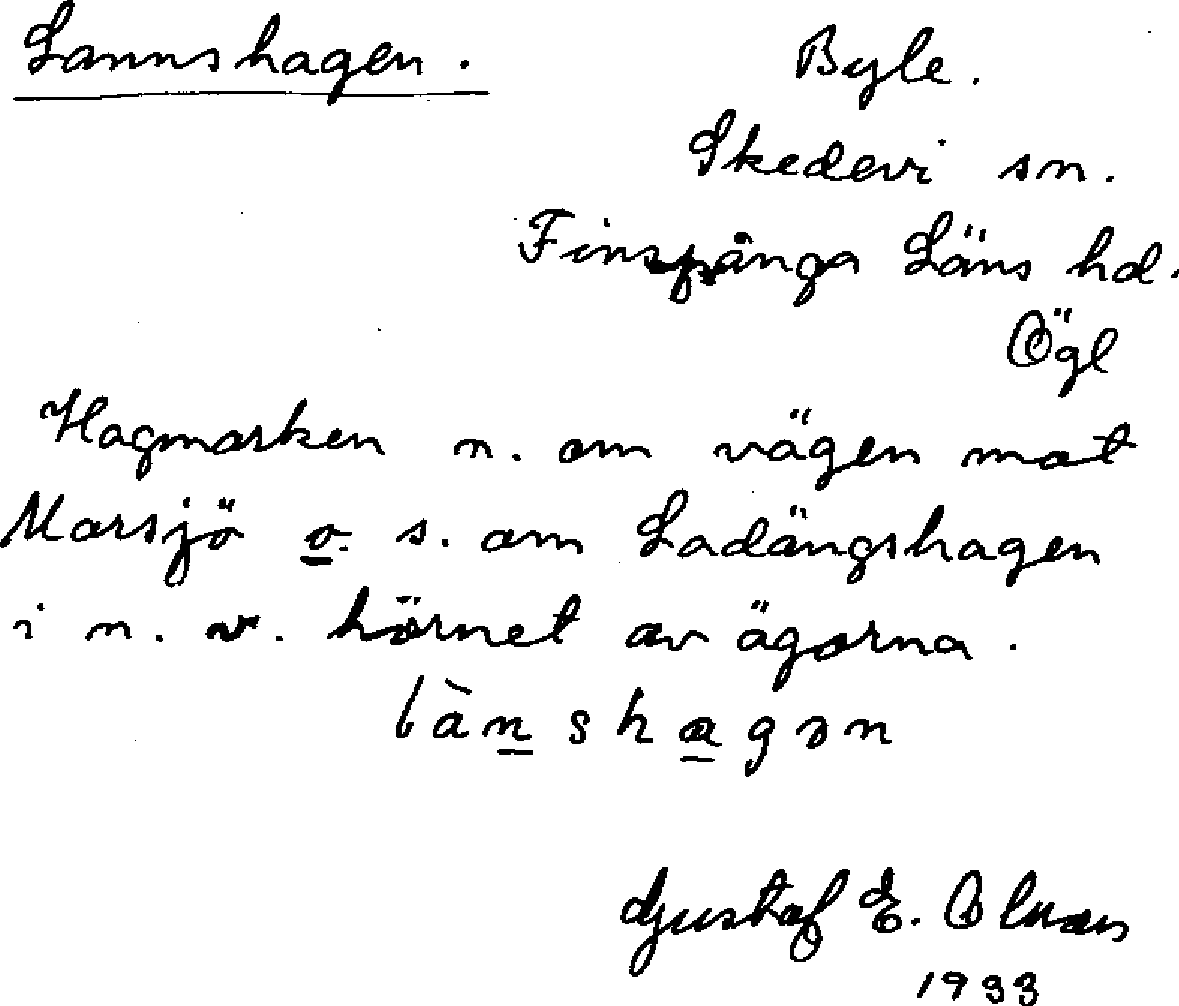 Lannshagen.
Byle.
Skedevi sn.
Finspånga Läns hd.
Ögl
Hagmarken n. om vägen mot
Morsjö o. s. om Ladängshagen
i n. v. hörnet av ägorna.
lànshagən
Gustaf E. Olsson
1933